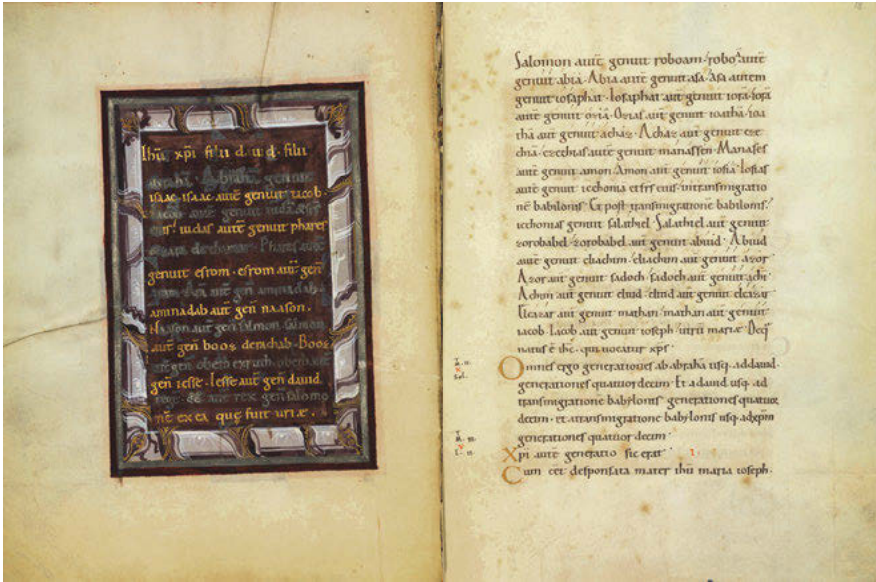 Ihū xp̄i filii d̄. ū. q̄. filii
abrahā. Abrahā genuit
isaac. isaac autē genuit iacob.
iacob autē genuit iudā &
eius; iudas autē genuit phares
& zarā dethamar. Phares autē
genuit esrom. esrom aut̄ gen̄
aram. Arā aut̄ gen̄ aminadab.
aminadab aut̄ gen̄ naason.
Naason aut̄ gen̄ salmon. salmon
aut̄ gen̄ boos derachab. Boos
aut̄ gen̄ obeth exruth. obeth aut̄
gen̄ iesse. Iesse aut̄ gen̄ dauid
regē. dd̄ aut̄ rex gen̄ salomo
nē ex ea quę fuit uriæ.
Salomon aut̄ genuit roboam. roboā autē
genuit abia. Abia autē genuit asa. asa autem
genuit iosaphat. Iosaphat aut̄ genuit iorā. iorā
autē genuit oziā. Ozias aut̄ genuit ioathā. ioa
thā aut̄ genuit achaz. Achaz aut̄ genuit eze
chiā. ezechias autē genuit manassen. Manases
autē genuit amon. Amon aut̄ genuit iosiā. Iosias
autē genuit iechonia et frs̄ eius. intransmigratio
nē babilonis. Et post transmigrationē babilonis;
iechonias genuit salathiel. Salathiel aut̄ genuit
zorobabel. zorobabel aut̄ genuit abiud. Abiud
autē genuit eliachim. eliachim aut̄ genuit azor
Azor aut̄ genuit sadoch. sadoch aut̄ genuit achī
Achim aut̄ genuit eliud. eliud aut̄ genuit eleazar
Eleazar aut̄ genuit mathan. mathan aut̄ genuit
iacob. Iacob aut̄ genuit ioseph. uirū mariæ. Deq̄
natus ē ihc̄. qui uocatur xp̄s.
Omnes ergo generationes ab abraha usq. addauid.
generationes quatuordecim. Et a dauid usq. ad
transmigrationē babylonis generationes quatuor
decim. et atransmigratione babylonis usq. adxp̄m
generationes quatuordecim.
Xp̄i autē generatio sic erat.
Cum eēt desponsata mater ihū maria ioseph.